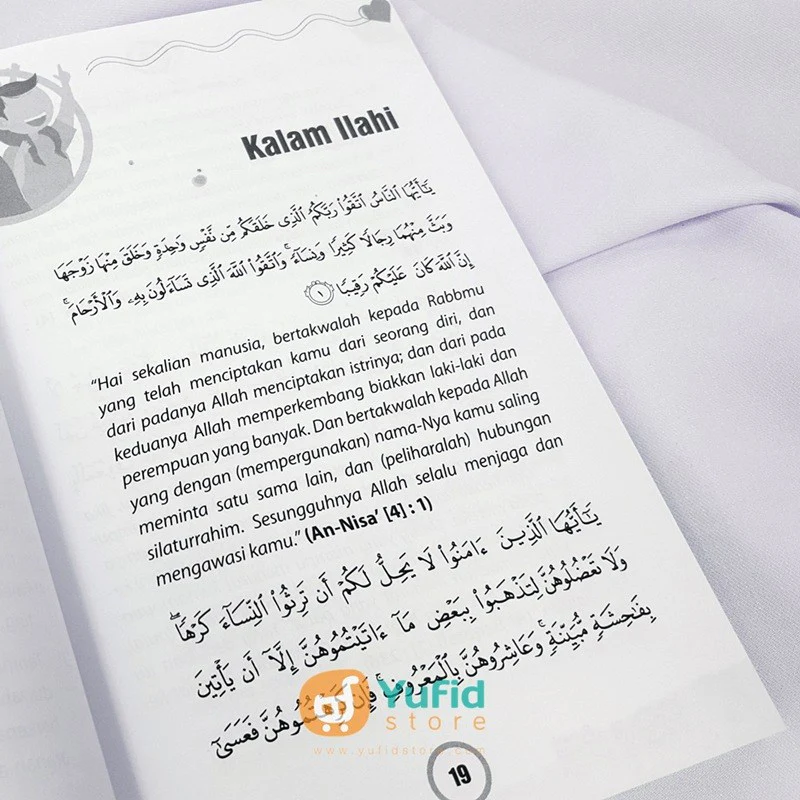 Kalam Ilahi
يَـٰٓأَيُّهَا ٱلنَّاسُ ٱتَّقُوا۟ رَبَّكُمُ ٱلَّذِى خَلَقَكُم مِّن نَّفْسٍ وَٰحِدَةٍ وَخَلَقَ مِنْهَا زَوْجَهَا
وَبَثَّ مِنْهُمَا رِجَالًا كَثِيرًا وَنِسَآءً ۚ وَٱتَّقُوا۟ ٱللَّهَ ٱلَّذِى تَسَآءَلُونَ بِهِۦ وَٱلْأَرْحَامَ ۚ
إِنَّ ٱللَّهَ كَانَ عَلَيْكُمْ رَقِيبًا ۝١
“Hai sekalian manusia, bertakwalah kepada Rabbmu
yang telah menciptakan kamu dari seorang diri, dan
dari padanya Allah menciptakan istrinya; dan dari pada
keduanya Allah memperkembang biakkan laki-laki dan
perempuan yang banyak. Dan bertakwalah kepada Allah
yang dengan (mempergunakan) nama-Nya kamu saling
meminta satu sama lain, dan (peliharalah) hubungan
silaturrahim. Sesungguhnya Allah selalu menjaga dan
mengawasi kamu.” (An-Nisa’ [4] : 1)
يَـٰٓأَيُّهَا ٱلَّذِينَ ءَامَنُوا۟ لَا يَحِلُّ لَكُمْ أَن تَرِثُوا۟ ٱلنِّسَآءَ كَرْهًا ۖ
وَلَا تَعْضُلُوهُنَّ لِتَذْهَبُوا۟ بِبَعْضِ مَآ ءَاتَيْتُمُوهُنَّ إِلَّآ أَن يَأْتِينَ
بِفَـٰحِشَةٍ مُّبَيِّنَةٍ ۚ وَعَاشِرُوهُنَّ بِٱلْمَعْرُوفِ ۚ فَإِن كَرِهْتُمُوهُنَّ فَعَسَىٰٓ
YuFid
store
www.yufidstore.com
19